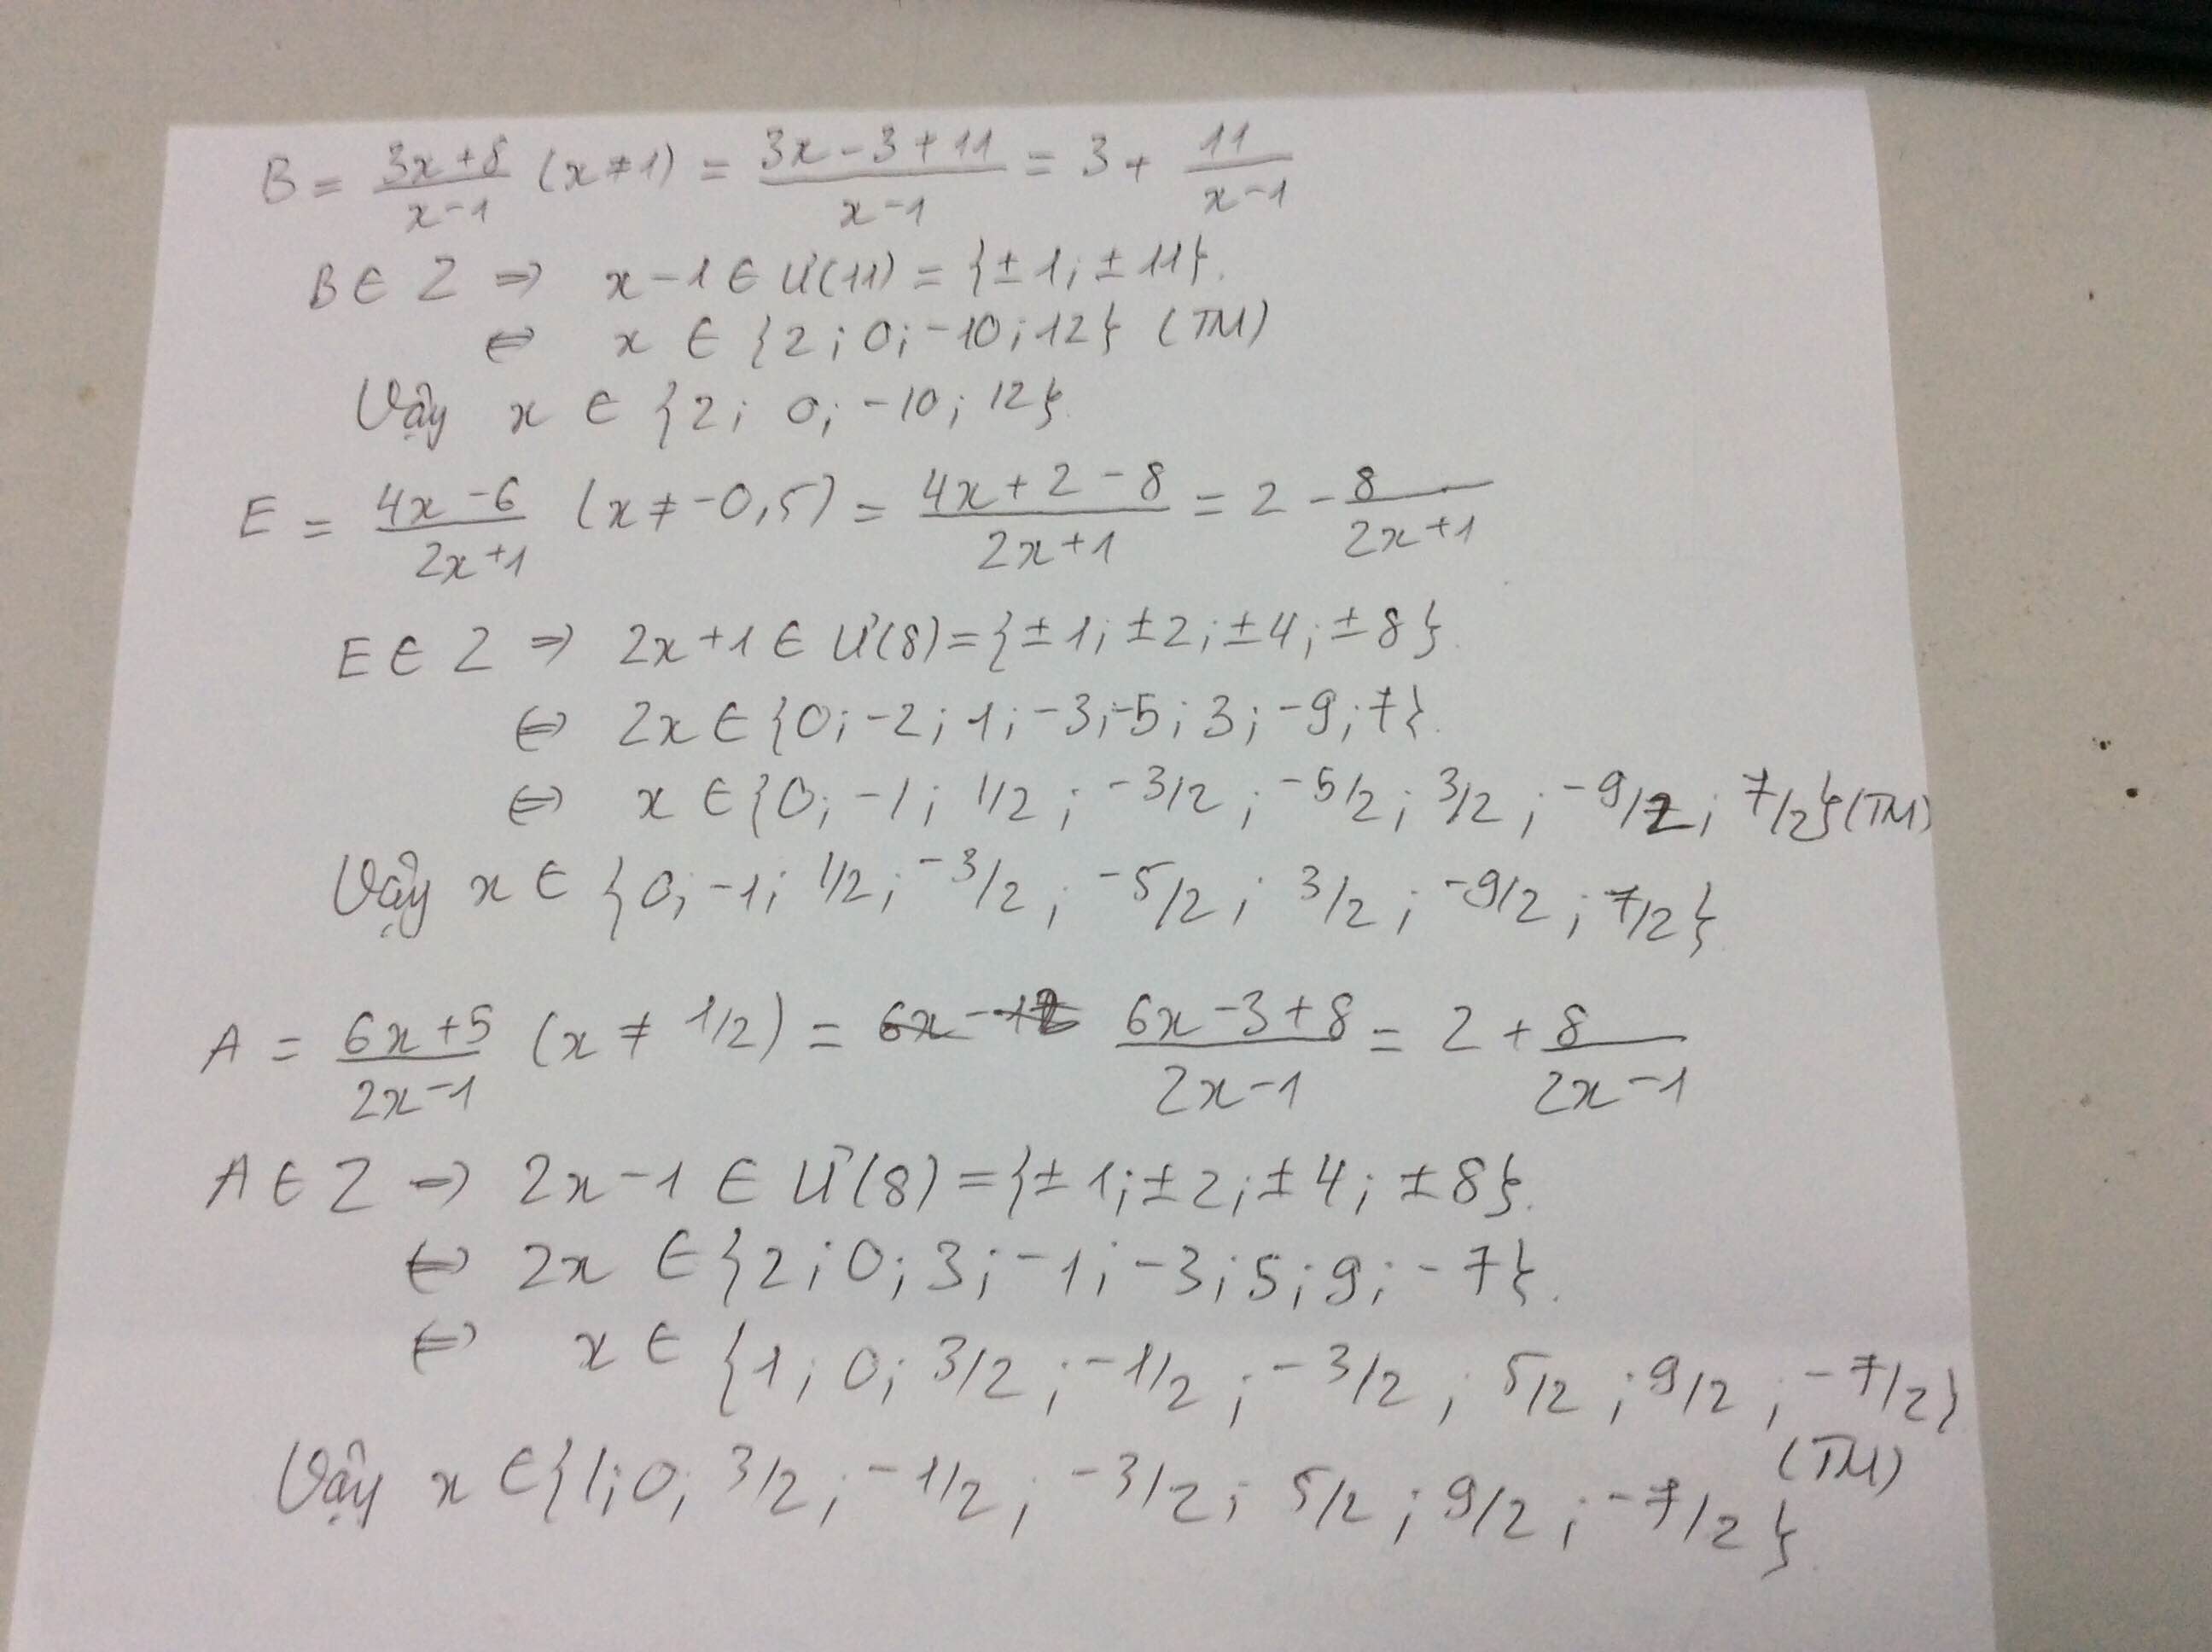 B = (3x+8)/(x-1) (x≠1) = (3x-3+11)/(x-1) = 3 + 11/(x-1)
B ∈ Z ⇒ x-1 ∈ Ư(11) = {±1; ±11}.
⇔ x ∈ {2; 0; -10; 12} (TM)
Vậy x ∈ {2; 0; -10; 12}.
E = (4x-6)/(2x+1) (x≠-0,5) = (4x+2-8)/(2x+1) = 2 - 8/(2x+1)
E ∈ Z ⇒ 2x+1 ∈ Ư(8) = {±1; ±2; ±4; ±8}.
⇔ 2x ∈ {0; -2; 1; -3; -5; 3; -9; 7}.
⇔ x ∈ {0; -1; 1/2; -3/2; -5/2; 3/2; -9/2; 7/2} (TM)
Vậy x ∈ {0; -1; 1/2; -3/2; -5/2; 3/2; -9/2; 7/2}
A = (6x+5)/(2x-1) (x ≠ 1/2) = (6x-3+8)/(2x-1) = 2 + 8/(2x-1)
A ∈ Z ⇒ 2x-1 ∈ Ư(8) = {±1; ±2; ±4; ±8}.
⇔ 2x ∈ {2; 0; 3; -1; -3; 5; 9; -7}.
⇔ x ∈ {1; 0; 3/2; -1/2; -3/2; 5/2; 9/2; -7/2}
(TM)
Vậy x ∈ {1; 0; 3/2; -1/2; -3/2; 5/2; 9/2; -7/2}